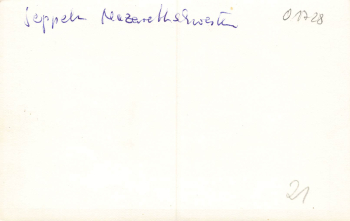 Jeppeln Nazarethschwestern 01728
21.